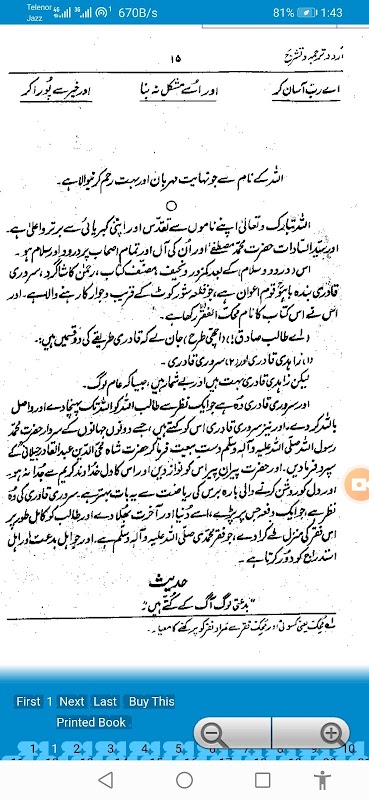 Telenor
Jazz
4G 3G 1 670B/s 81% 1:43
اُردو ترجمہ و تشریح
۱۵
اے رب آسان کر اور اُسے مشکل نہ بنا اور خیر سے پُورا کر
اللہ کے نام سے جو نہایت مہربان اور بہت رحم کرنیوالا ہے۔
اللہ تبارک و تعالیٰ اپنے ناموں سے تقدّس اور اپنی کبریائی سے برتر و اعلیٰ ہے۔
اور سیّد السادات حضرت محمد مصطفےٰ اور اُن کی آل اور تمام اصحاب پر درود اور سلام ہو۔
اس (درود و سلام) کے بعد کمزور و نحیف مصنّف کتاب، رحمٰن کا شاگرد، سروری
قادری بندہ باہُو قوم اعوان ہے، جو قلعہ شور کوٹ کے قریب و جوار کا رہنے والا ہے۔ اور
اس نے اس کتاب کا نام محک الفقر رکھا ہے۔
(اے طالب صادق!) (اچھی طرح) جان لے کہ قادری طریقے کی دو قسمیں ہیں:۔
(۱) زاہدی قادری اور (۲) سروری قادری۔
لیکن زاہدی قادری بہت ہیں اور بے شمار ہیں، جیسا کہ عام لوگ۔
اور سروری قادری وہ ہے جو ایک نظر سے طالب اللہ کو اللہ تک پہنچا دے اور واصل
باللہ کر دے، اور نیز سروری قادری اس کو کہتے ہیں، جسے دونوں جہانوں کے سردار حضرت محمد
رسول اللہ صلی اللہ علیہ وآلہ وسلم دست بیعت فرما کر حضرت شاہ محی الدین عبد القادر جیلانی کے
سپرد فرما دیں۔ اور حضرت پیران پیر اس کو نواز دیں اور اس کا دل خداوند کریم سے جدا نہ ہو۔
اور دل کو روشن کرنے والی بارہ برس کی ریاضت سے یہ بات بہتر ہے۔ سروری قادری کی وہ
نظر ہے، جو ایک دفعہ جس پر پڑے، اسے دُنیا اور آخرت بھلا دے اور طالب کو کامل طور پر
اس فقر کی منزل طے کرا دے، جو فقر محمدی صلی اللہ علیہ وآلہ وسلم ہے۔ اور جو اہل بدعت اور اہل
استدراج کو دُور کرتا ہے۔
حدیث
"بدعتی لوگ آگ کے کُتّے ہیں"
محک یعنی کسوٹی اور محک فقر سے مراد فقر کو پرکھنے کا معیار۔
First 1 Next Last Buy This
Printed Book
1 2 3 4 5 6 7 8 9 10